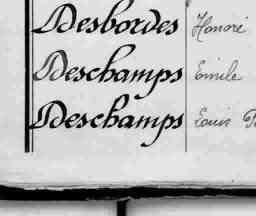 Desbordes Honoré
Deschamps Emile
Deschamps Louis